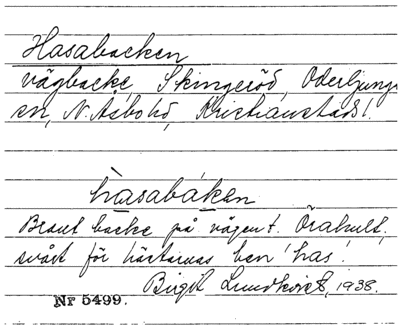 Hasabacken
vägbacke, Skingeröd, Oderljunga
sn, N. Åsbo hd, Kristianstads l.
hasabáken
Brant backe på vägen t. Örahult,
svårt för hästarnas ben 'has'.
Birgit Lundkvist, 1938.
Nr 5499.